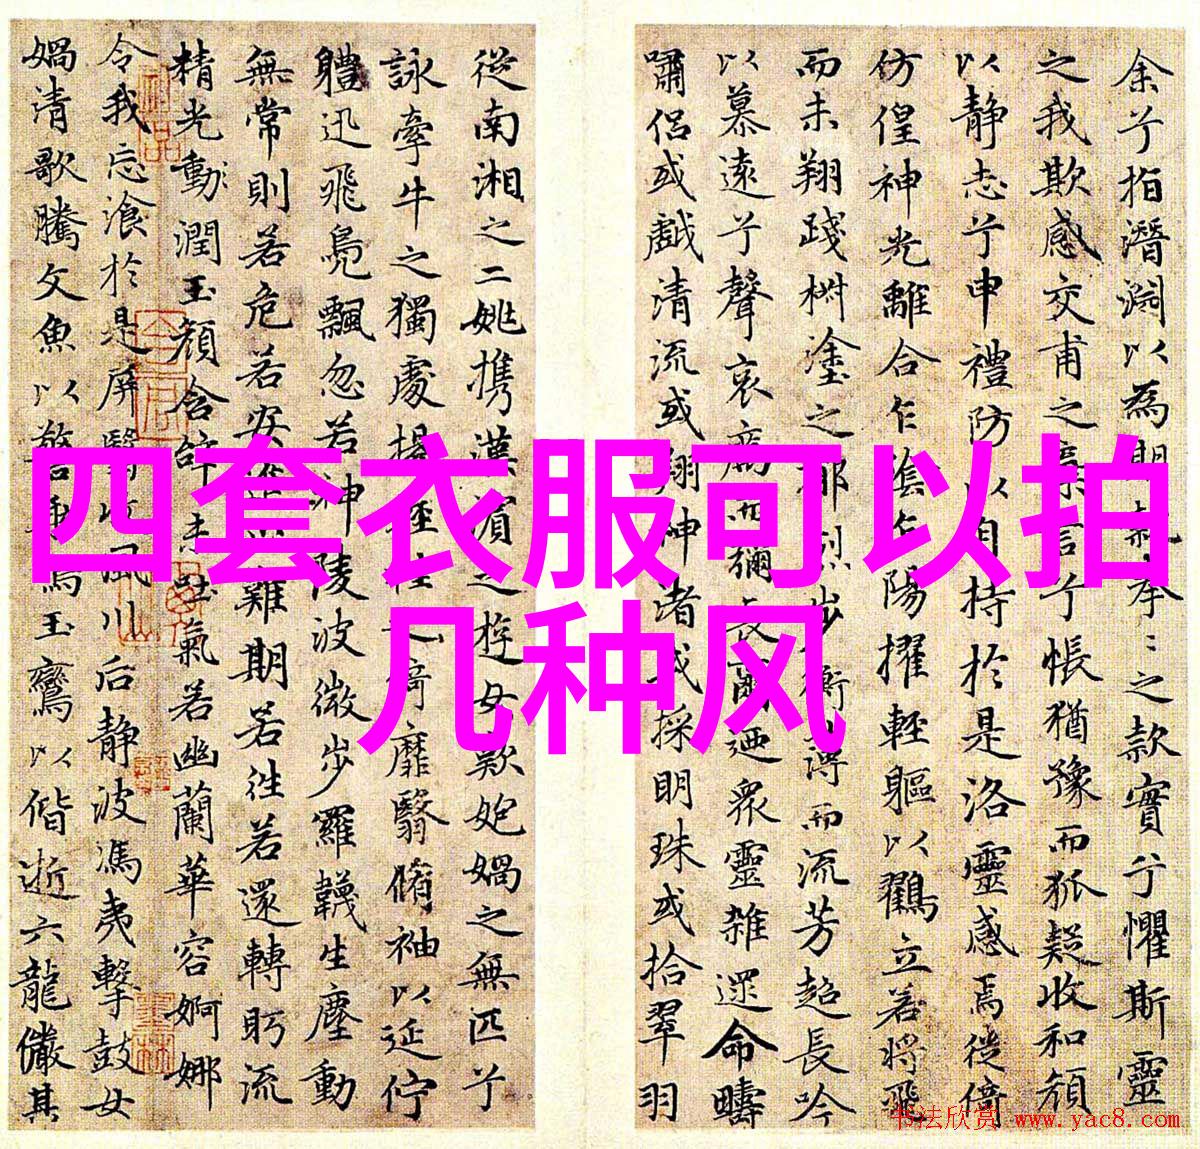 余兮指潛淵以為期拳:之款實兮懼斯靈
之我欺感交甫之棄言兮悵猶豫而狐疑收和顏
以静志兮申禮防以自持於是洛靈感焉徙倚
仿偟神光離合乍陰乍陽擢輕軀以鶴立若將飛
而未翔踐椒塗之烈步蘅薄而流芳超長吟
以慕遠兮聲哀厲而彌長爾迺眾靈雜遝命疇
嘯侣或戲清流或翔神渚或採明珠或拾翠羽
從南湘之二姚攜漢濱之遊女歎匏媧之無匹兮
詠牽牛之獨處揚輕袿之猗靡翳脩袖以延佇
體迅飛鳧飄忽若神陵波微步羅韈生塵動
無常則若危若安難期若往若還轉眄流
精光動潤玉顏含辭未吐氣若幽蘭華容婀娜
令我忘飡於是屏翳收風川后静波馮夷擊鼓女
媧清歌騰文魚以警乘鳴玉鸞以偕逝六龍儼其
四套衣服可以拍
几种风
书法欣赏 www.yac8.com